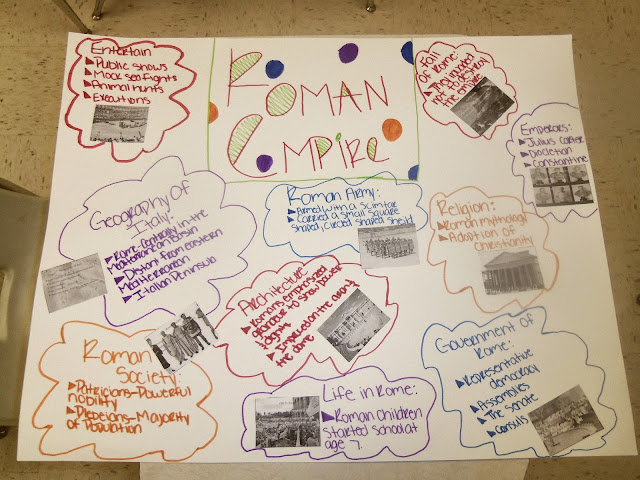 Entertain
Public shows
Mock sea fights
Animal hunts
Executions
ROMAN
EMPIRE
Fall
of Rome:
The invaded
the empire
Emperors:
Diocletion
Constantine
Geography Of
Italy:
Rome-centrally in the
Mediterranean Basin
Distant from eastern
Mediterranean
Italian Peninsula
Roman Army:
Armed with a scimtar
Carried a small square
shaped, curved shaped sheild
Religion:
Roman mythology
Adoption of
christianity
Architecture:
Romans emphasized
grandeur to show power
Improved on the arch and
the dome
Roman
Society:
Patricians-Powerful
nobility
Plebeians-Majority
of Population
Life in Rome:
Roman children
started school at
age 7.
Government of
Rome:
Representative
democracy
Assemblies
The senate
Consuls